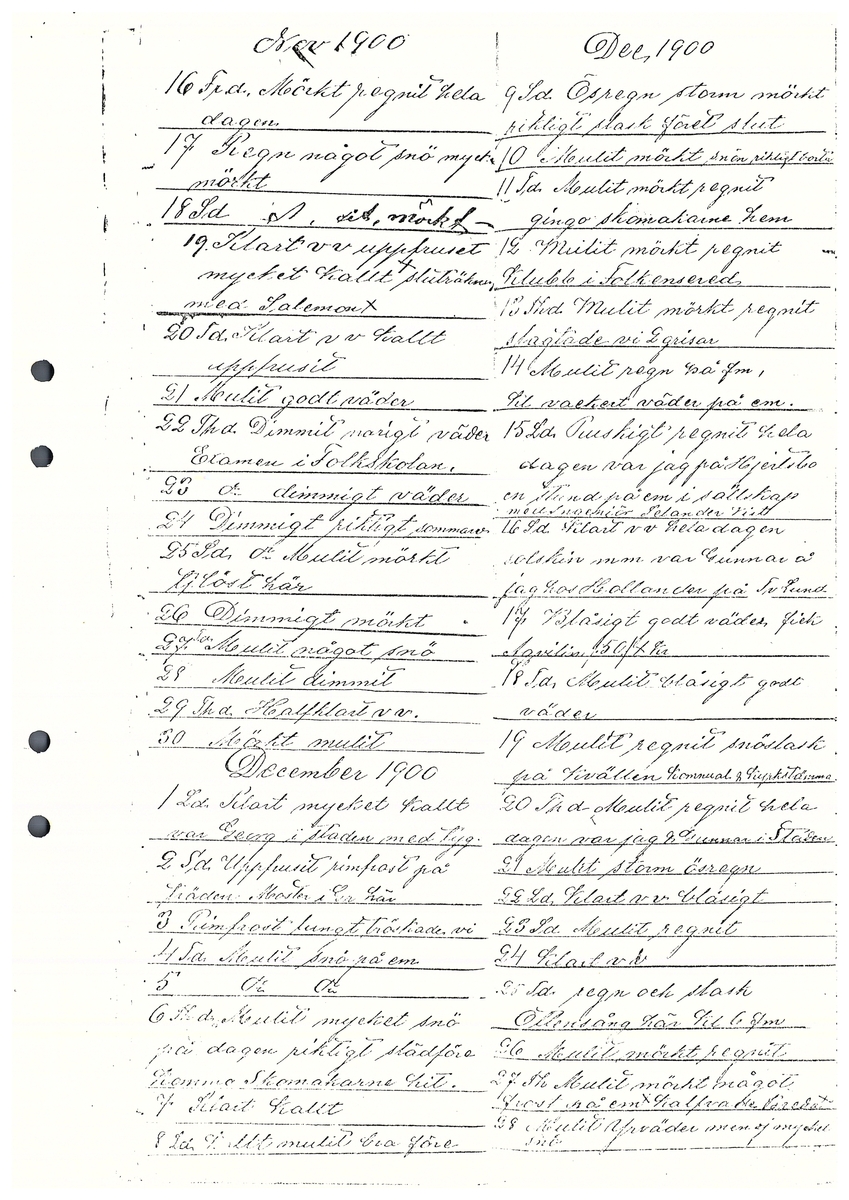 Nov 1900
16 Frd. Mörkt regnit hela
dagen
17 Regn något snö mycke
mörkt
18 Sd mörkt
19. Klart v v uppfruset
mycket kallt + sluträkna
med Salemon x
20 Td. Klart v v kallt
uppfrusit
21 Mulit godt väder
22 Thd. Dimmit väder
Examen i Folkskolan.
23 do dimmigt väder
24 Dimmigt riktigt sommarv
25 Sd. do Mulit mörkt
här
26 Dimmigt mörkt
27 Mulit något snö
28 Mulit dimmit
29 Thd. Halfklart v v.
30 Mörkt mulit
December 1900
1 Ld. Klart mycket kallt
var Georg i staden med tyg.
2 Sd. Uppfrusit rimfrost på
träden. Moster i här
3 Rimfrost lungt tröskade vi
4 Td. Mulit snö på em
5 do do
6 Thd. Mulit mycket snö
på dagen riktigt slädföre
Kommo Skomakarne hit.
7 Klart kallt
8 Ld. mulit bra före
Dec, 1900
9 Sd. Ösregn storm mörkt
riktigt slask föret slut
10 Mulit mörkt snön riktigt borta
11 Td. Mulit mörkt regnit
gingo skomakarne hem
12 Mulit mörkt regnit
Klubb i Folkensered
13 Thd. Mulit mörkt regnit
slagtade vi 2 grisar
14 Mulit regn på fm,
til vackert väder på em.
15 Ld. Ruskigt regnit hela
dagen var jag på Hjertsbo
en stund på em i sällskap
med Ingeniör Selander
16 Sd. Klart v v hela dagen
solskin m m var Gunnar å
jag hos Hollander på Lund
17 Blåsigt godt väder, fick
50 Kr
18 Td. Mulit blåsigt godt
väder
19 Mulit regnit snöslask
på Komunal & Kyrkstämma
20 Thd. Mulit regnit hela
dagen var jag & Gunnar i Staden
21 Mulit storm ösregn
22 Ld. Klart v v blåsigt
23 Sd. Mulit regnit
24 Klart v v
25 Td. regn och slask
Ottensång här kl 6 fm
26 Mulit mörkt regnit
27 Th Mulit mörkt något
frost på em
28 Mulit Yrväder men ej mycket
snö